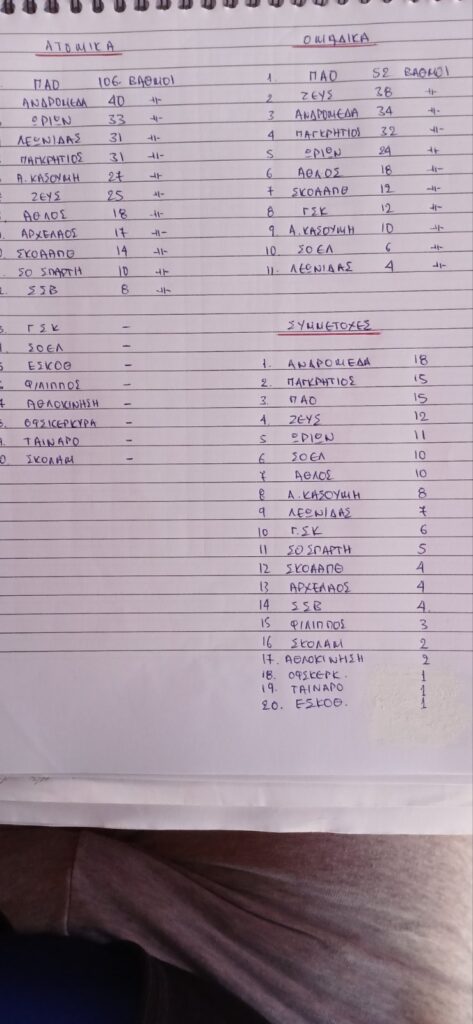 ΑΤΟΜΙΚΑ
ΠΑΟ 106 ΒΑΘΜΟΙ
ΑΝΔΡΟΜΕΔΑ 40 -||-
ΩΡΙΩΝ 33 -||-
ΛΕΩΝΙΔΑΣ 31 -||-
ΠΑΓΚΡΗΤΙΟΣ 31 -||-
Α.ΚΑΣΟΥΜΗ 27 -||-
ΖΕΥΣ 25 -||-
ΑΘΛΟΣ 18 -||-
ΑΡΧΕΛΑΟΣ 17 -||-
ΣΚΟΑΑΠΘ 14 -||-
ΣΟ ΣΠΑΡΤΗ 10 -||-
ΣΣΒ 8 -||-
ΓΣΚ -
ΣΟΕΛ -
ΕΣΚΟΘ -
ΦΙΛΙΠΠΟΣ -
ΑΘΛΟΚΙΝΗΣΗ -
ΟΦΣΚΕΡΚΥΡΑ -
ΤΑΙΝΑΡΟ -
ΣΚΟΛΑΜ -
ΟΜΑΔΙΚΑ
1. ΠΑΟ 52 ΒΑΘΜΟΙ
2 ΖΕΥΣ 38 -||-
3 ΑΝΔΡΟΜΕΔΑ 34 -||-
4 ΠΑΓΚΡΗΤΙΟΣ 32 -||-
5 ΩΡΙΩΝ 24 -||-
6 ΑΘΛΟΣ 18 -||-
7 ΣΚΟΑΑΠΘ 12 -||-
8 ΓΣΚ 12 -||-
9 Α.ΚΑΣΟΥΜΗ 10 -||-
10. ΣΟΕΛ 6 -||-
11. ΛΕΩΝΙΔΑΣ 4 -||-
ΣΥΜΜΕΤΟΧΕΣ
1. ΑΝΔΡΟΜΕΔΑ 18
2. ΠΑΓΚΡΗΤΙΟΣ 15
3. ΠΑΟ 15
4. ΖΕΥΣ 12
5 ΩΡΙΩΝ 11
6 ΣΟΕΛ 10
7 ΑΘΛΟΣ 10
8 Α.ΚΑΣΟΥΜΗ 8
9 ΛΕΩΝΙΔΑΣ 7
10 Γ.ΣΚ 6
11 ΣΟ ΣΠΑΡΤΗ 5
12 ΣΚΟΑΑΠΘ 4
13 ΑΡΧΕΛΑΟΣ 4
14 ΣΣΒ 4
15 ΦΙΛΙΠΠΟΣ 3
16 ΣΚΟΛΑΜ 2
17. ΑΘΛΟΚΙΝΗΣΗ 2
18. ΟΦΣΚΕΡΚ. 1
19. ΤΑΙΝΑΡΟ 1
20. ΕΣΚΟΘ. 1